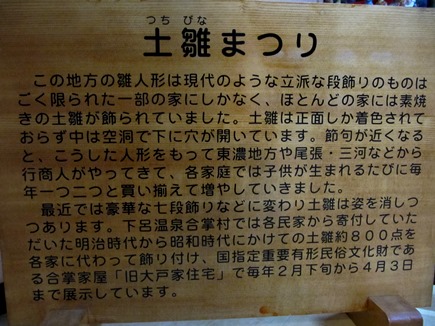 つち びな
土雛まつり
この地方の雛人形は現代のような立派な段飾りのものは
ごく限られた一部の家にしかなく、ほとんどの家には素焼
きの土雛が飾られていました。土雛は正面しか着色されて
おらず中は空洞で下に穴が開いています。節句が近くなる
と、こうした人形をもって東濃地方や尾張・三河などから
行商人がやってきて、各家庭では子供が生まれるたびに毎
年一つ二つと買い揃えて増やしていきました。
最近では豪華な七段飾りなどに変わり土雛は姿を消しつ
つあります。下呂温泉合掌村では各民家から寄付していた
だいた明治時代から昭和時代にかけての土雛約800点を
各家に代わって飾り付け、国指定重要有形民俗文化財であ
る合掌家屋「旧大戸家住宅」で毎年2月下旬から4月3日
まで展示しています。